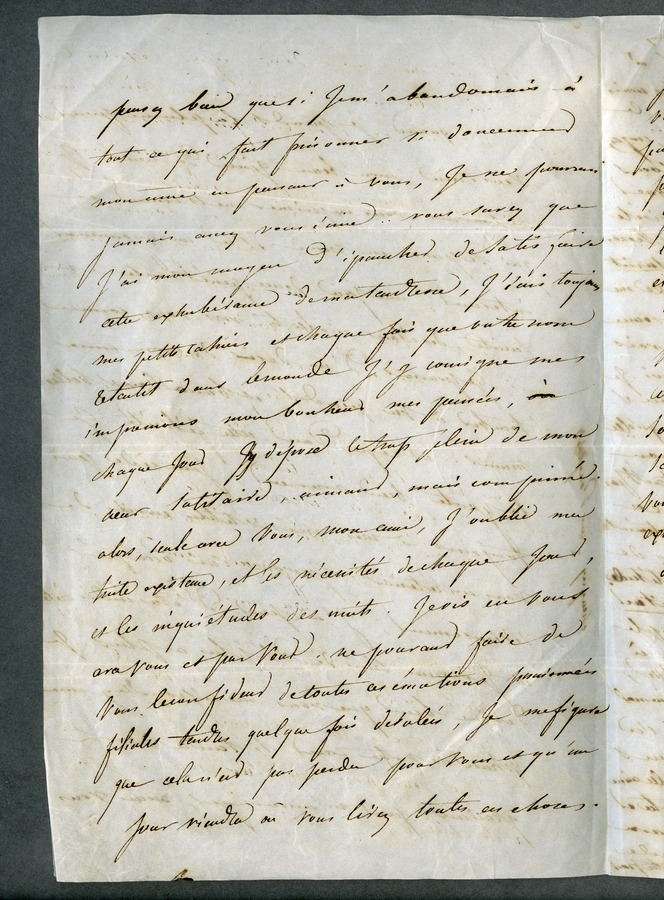 pensez bien que si je m'abandonnais à
tout ce qui fait frissonner si doucement
mon âme en pensant à vous, je ne pourrais
jamais assez vous écrire .. vous savez que
j'ai mon moyen d'épancher de satisfaire
cette exhubérance de ma tendresse, j'écris toujours
mes petits cahiers et chaque fois que votre nom
retentit dans le monde j'y consigne mes
impressions mon bonheur mes pensées,
chaque jour j'y dépose le trop plein de mon
cœur solitaire, aimant, mais comprimé.
alors, seule avec vous, mon ami, j'oublie ma
triste existence, et les nécessités de chaque jour,
et les inquiétudes des nuits. Je vis en vous
avec vous et par vous. ne pouvant faire de
vous le confident de toutes ces émotions passionnées
filiales tendres quelque fois désolées, je me figure
que cela n'est pas perdu pour vous et qu'un
jour viendra où vous lirez toutes ces choses.